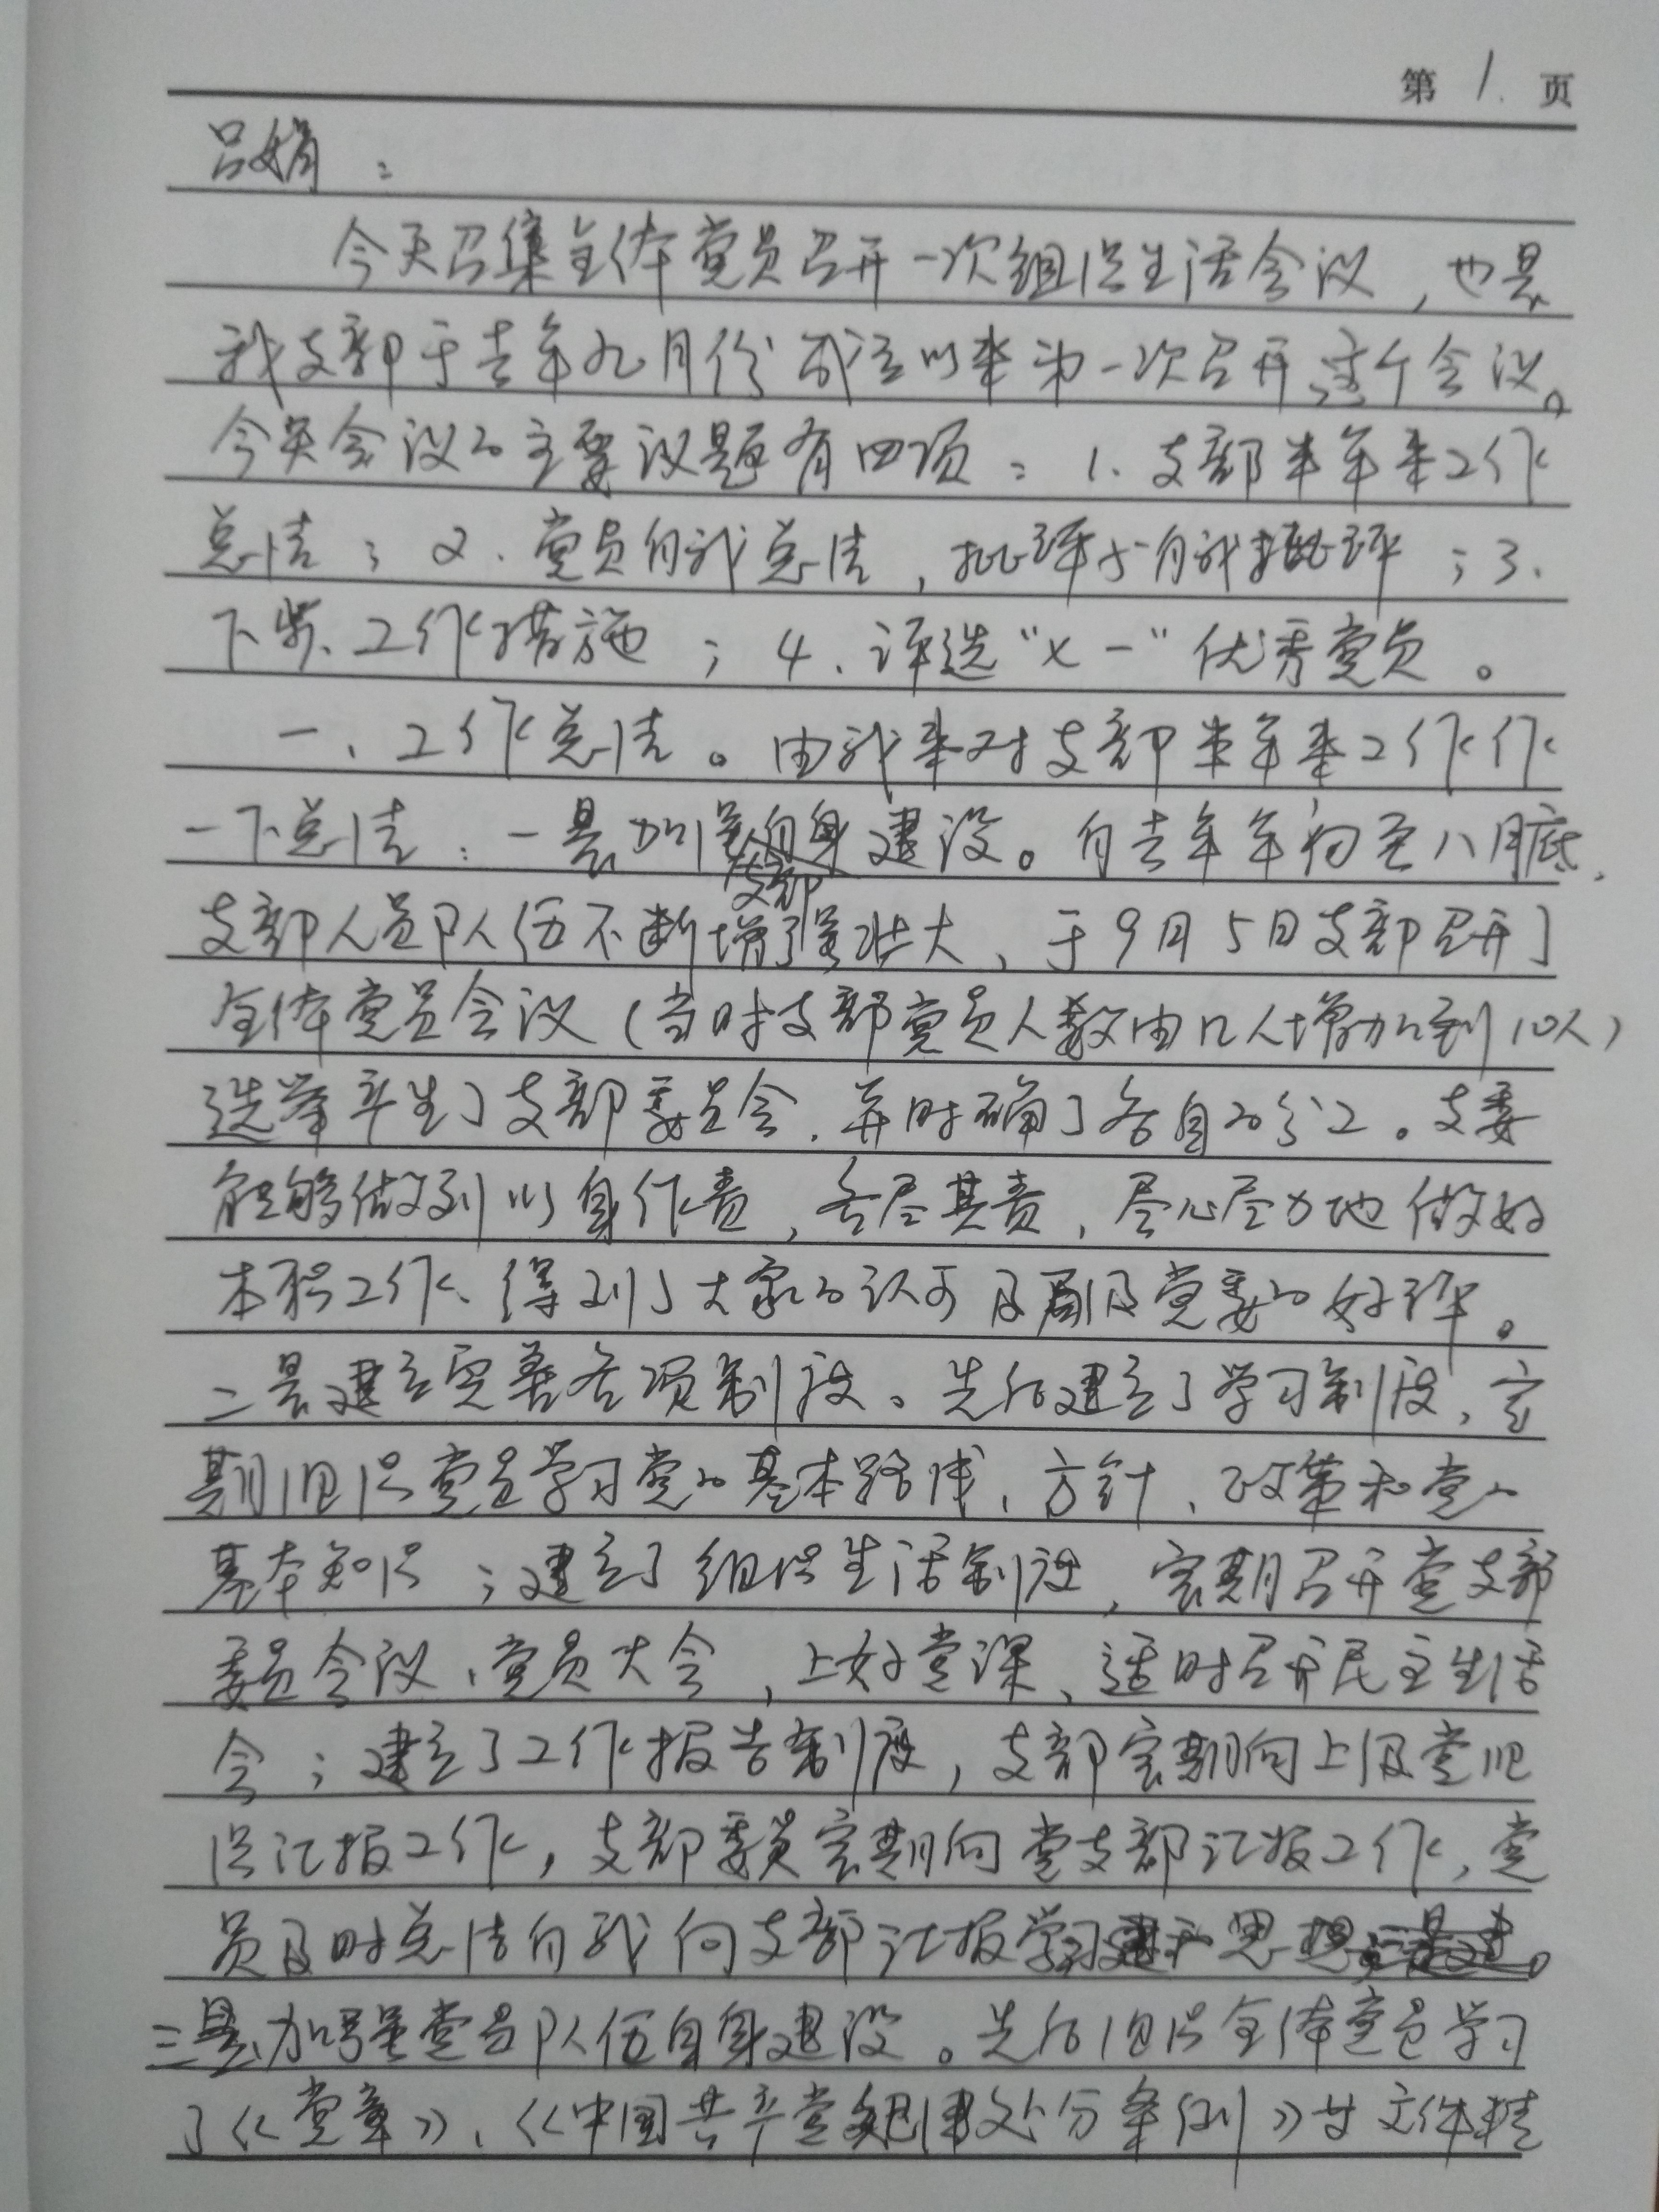 第 1. 页
吕娟：
今天召集全体党员召开一次组织生活会议，也是
我支部于去年九月份成立以来第一次召开这个会议。
今天会议的主要议题有四项：1、支部半年来工作
总结；2、党员自我总结，批评与自我批评；3、
下步工作措施；4、评选“七一”优秀党员。
一、工作总结。由我来对支部半年来工作作
一下总结：一是加强支部建设。自去年年初至八月底，
支部人员队伍不断增强壮大，于9月5日支部召开了
全体党员会议（当时支部党员人数由几人增加到10人）
选举产生了支部委员会，并明确了各自的分工。支委
能够做到以身作责，各尽其责，尽心尽力地做好
本职工作、得到了大家的认可及党委的好评。
二是建立完善各项制度。先后建立了学习制度，定
期组织党员学习党的基本路线、方针、政策和党的
基本知识；建立了组织生活制度，定期召开党支部
委员会议、党员大会，上好党课、适时召开民主生活
会；建立了工作报告制度，支部定期向上级党组
织汇报工作，支部委员定期向党支部汇报工作，党
员及时总结自我向支部汇报学习和思想。
三是加强党员队伍自身建设。先后组织全体党员学习
了《党章》、《中国共产党纪律处分条例》等文件精